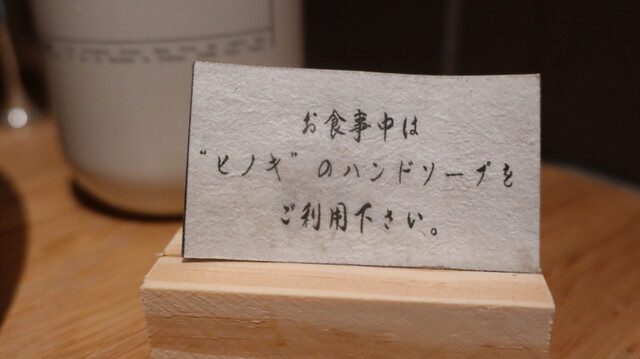 お食事中は
“ヒノキ”のハンドソープを
ご利用下さい。